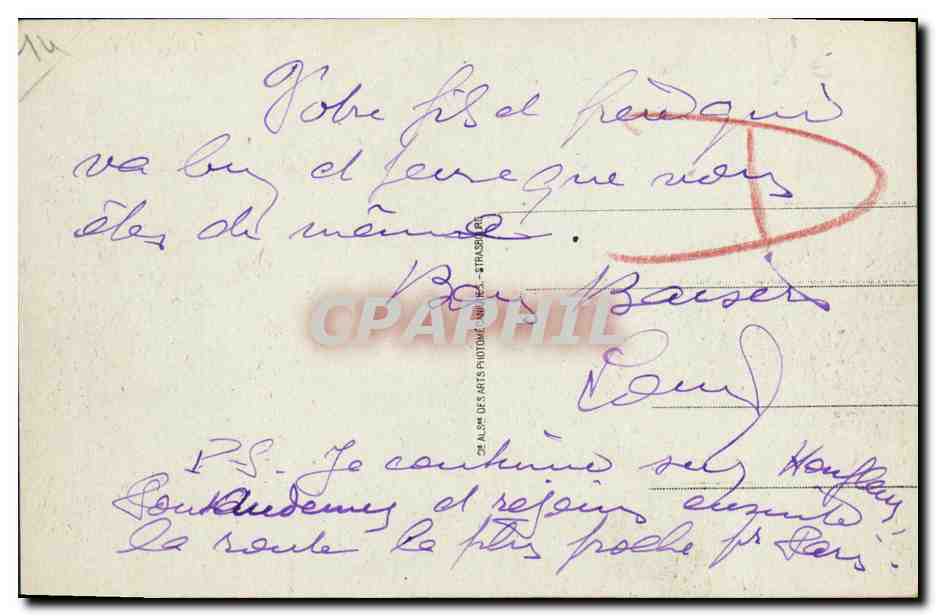 14
Votre fils et
va bien et pense que vous
êtes de même.
Bons Baisers
Louis
P.S. Je continue sur Honfleur,
Pontaudemer et rejoins ensuite
la route la plus proche pr Paris.
D
CPAPHIL
Cie ALSne DES ARTS PHOTOMÉCANIQUES. - STRASBOURG